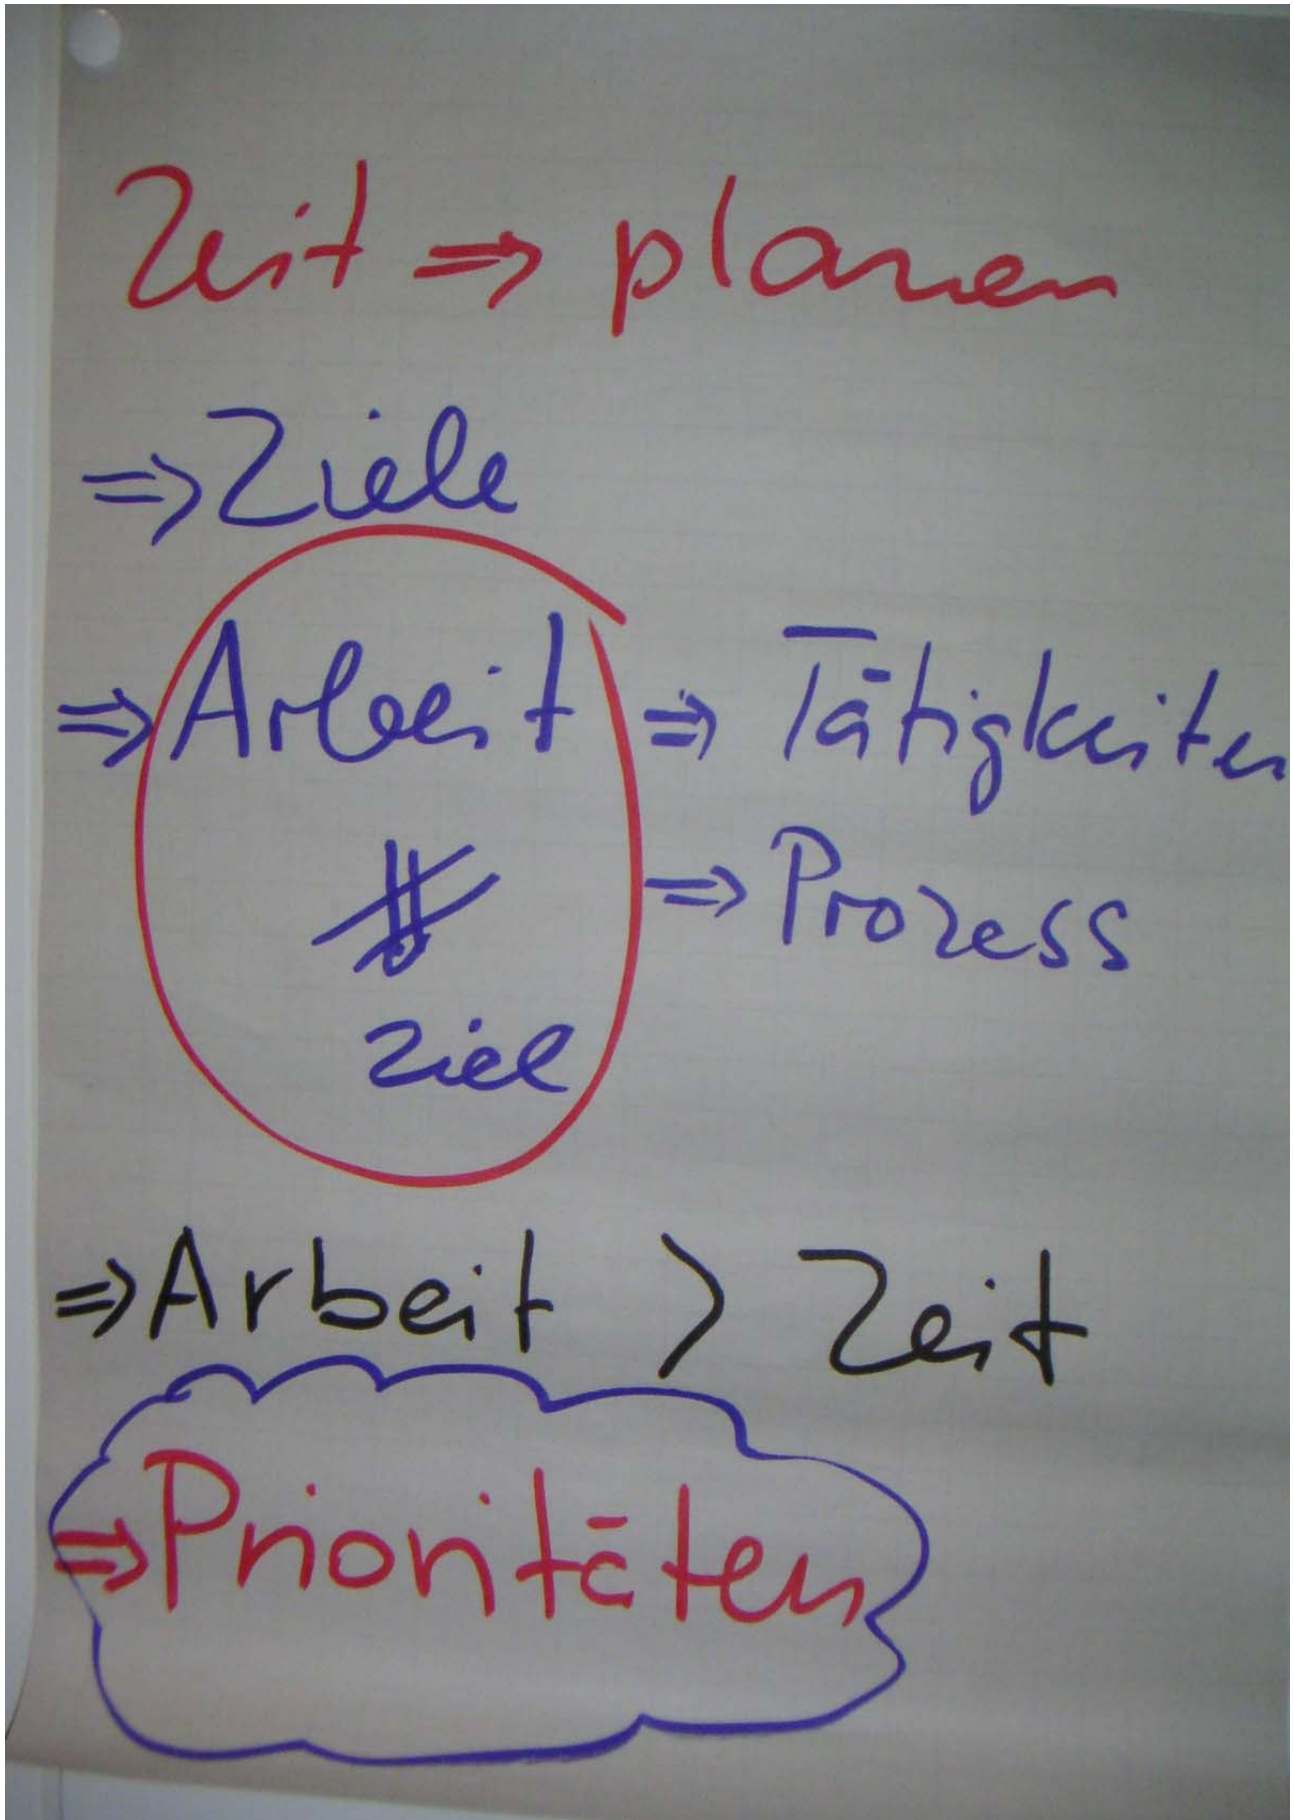 Zeit ⇒ planen
⇒ Ziele
⇒ Arbeit ⇒ Tätigkeiten
⇒ Prozess
Ziel
⇒ Arbeit > Zeit
⇒ Prioritäten